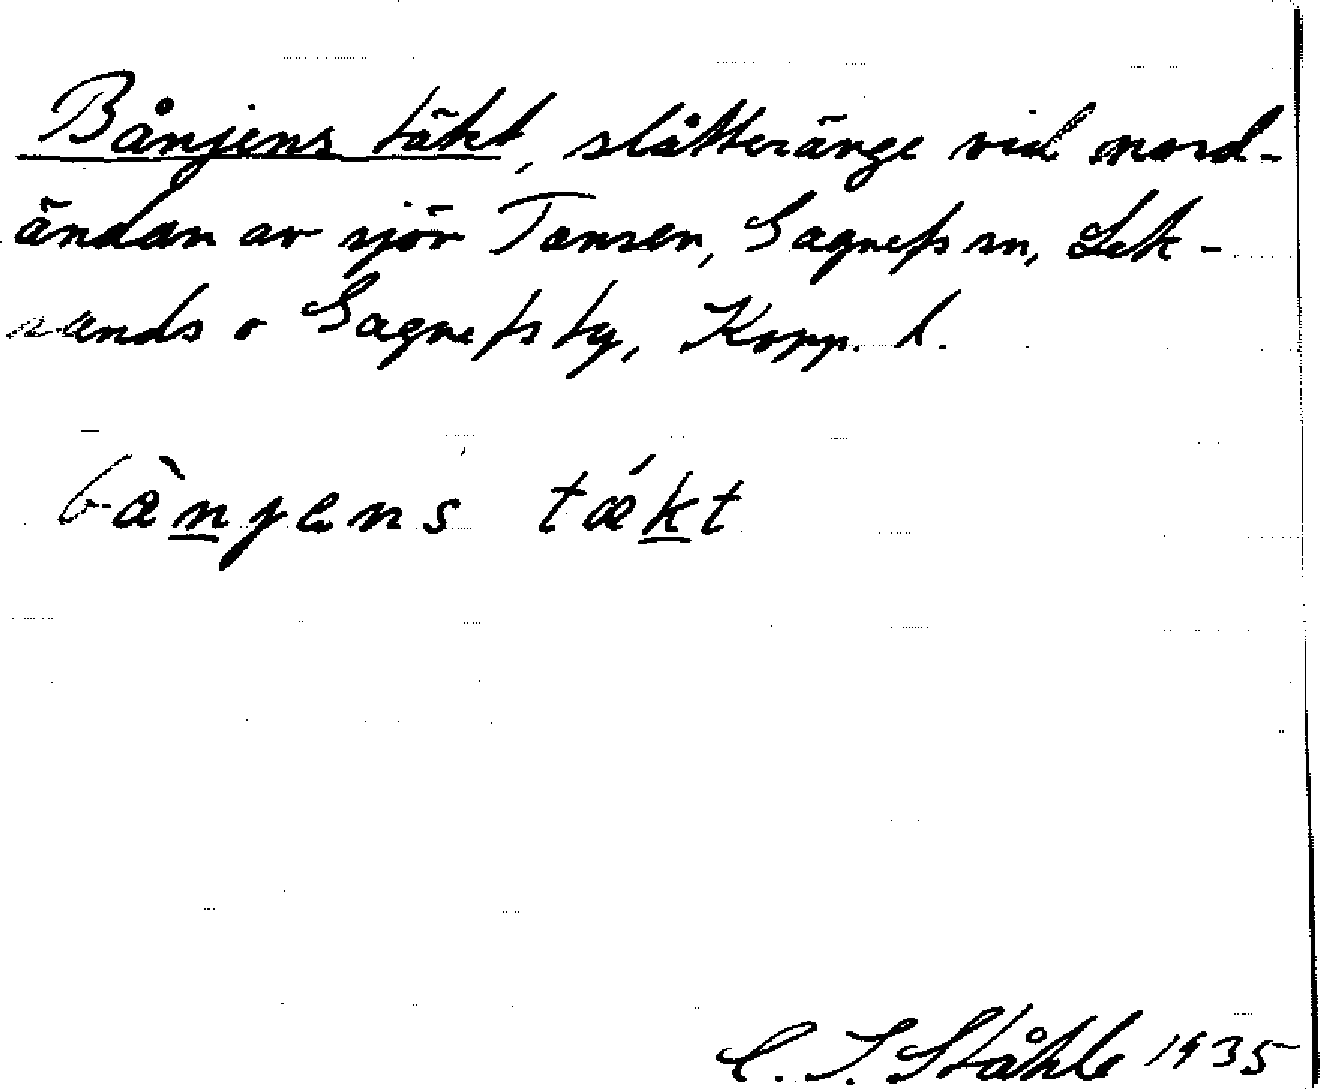 Bånjens täkt, slåtteränge vid nord-
ändan av sjön Tansen, Gagnefs sn, Lek-
sands o Gagnefs tg, Kopp. l.
bànjens tǽkt
C. I. Ståhle 1935